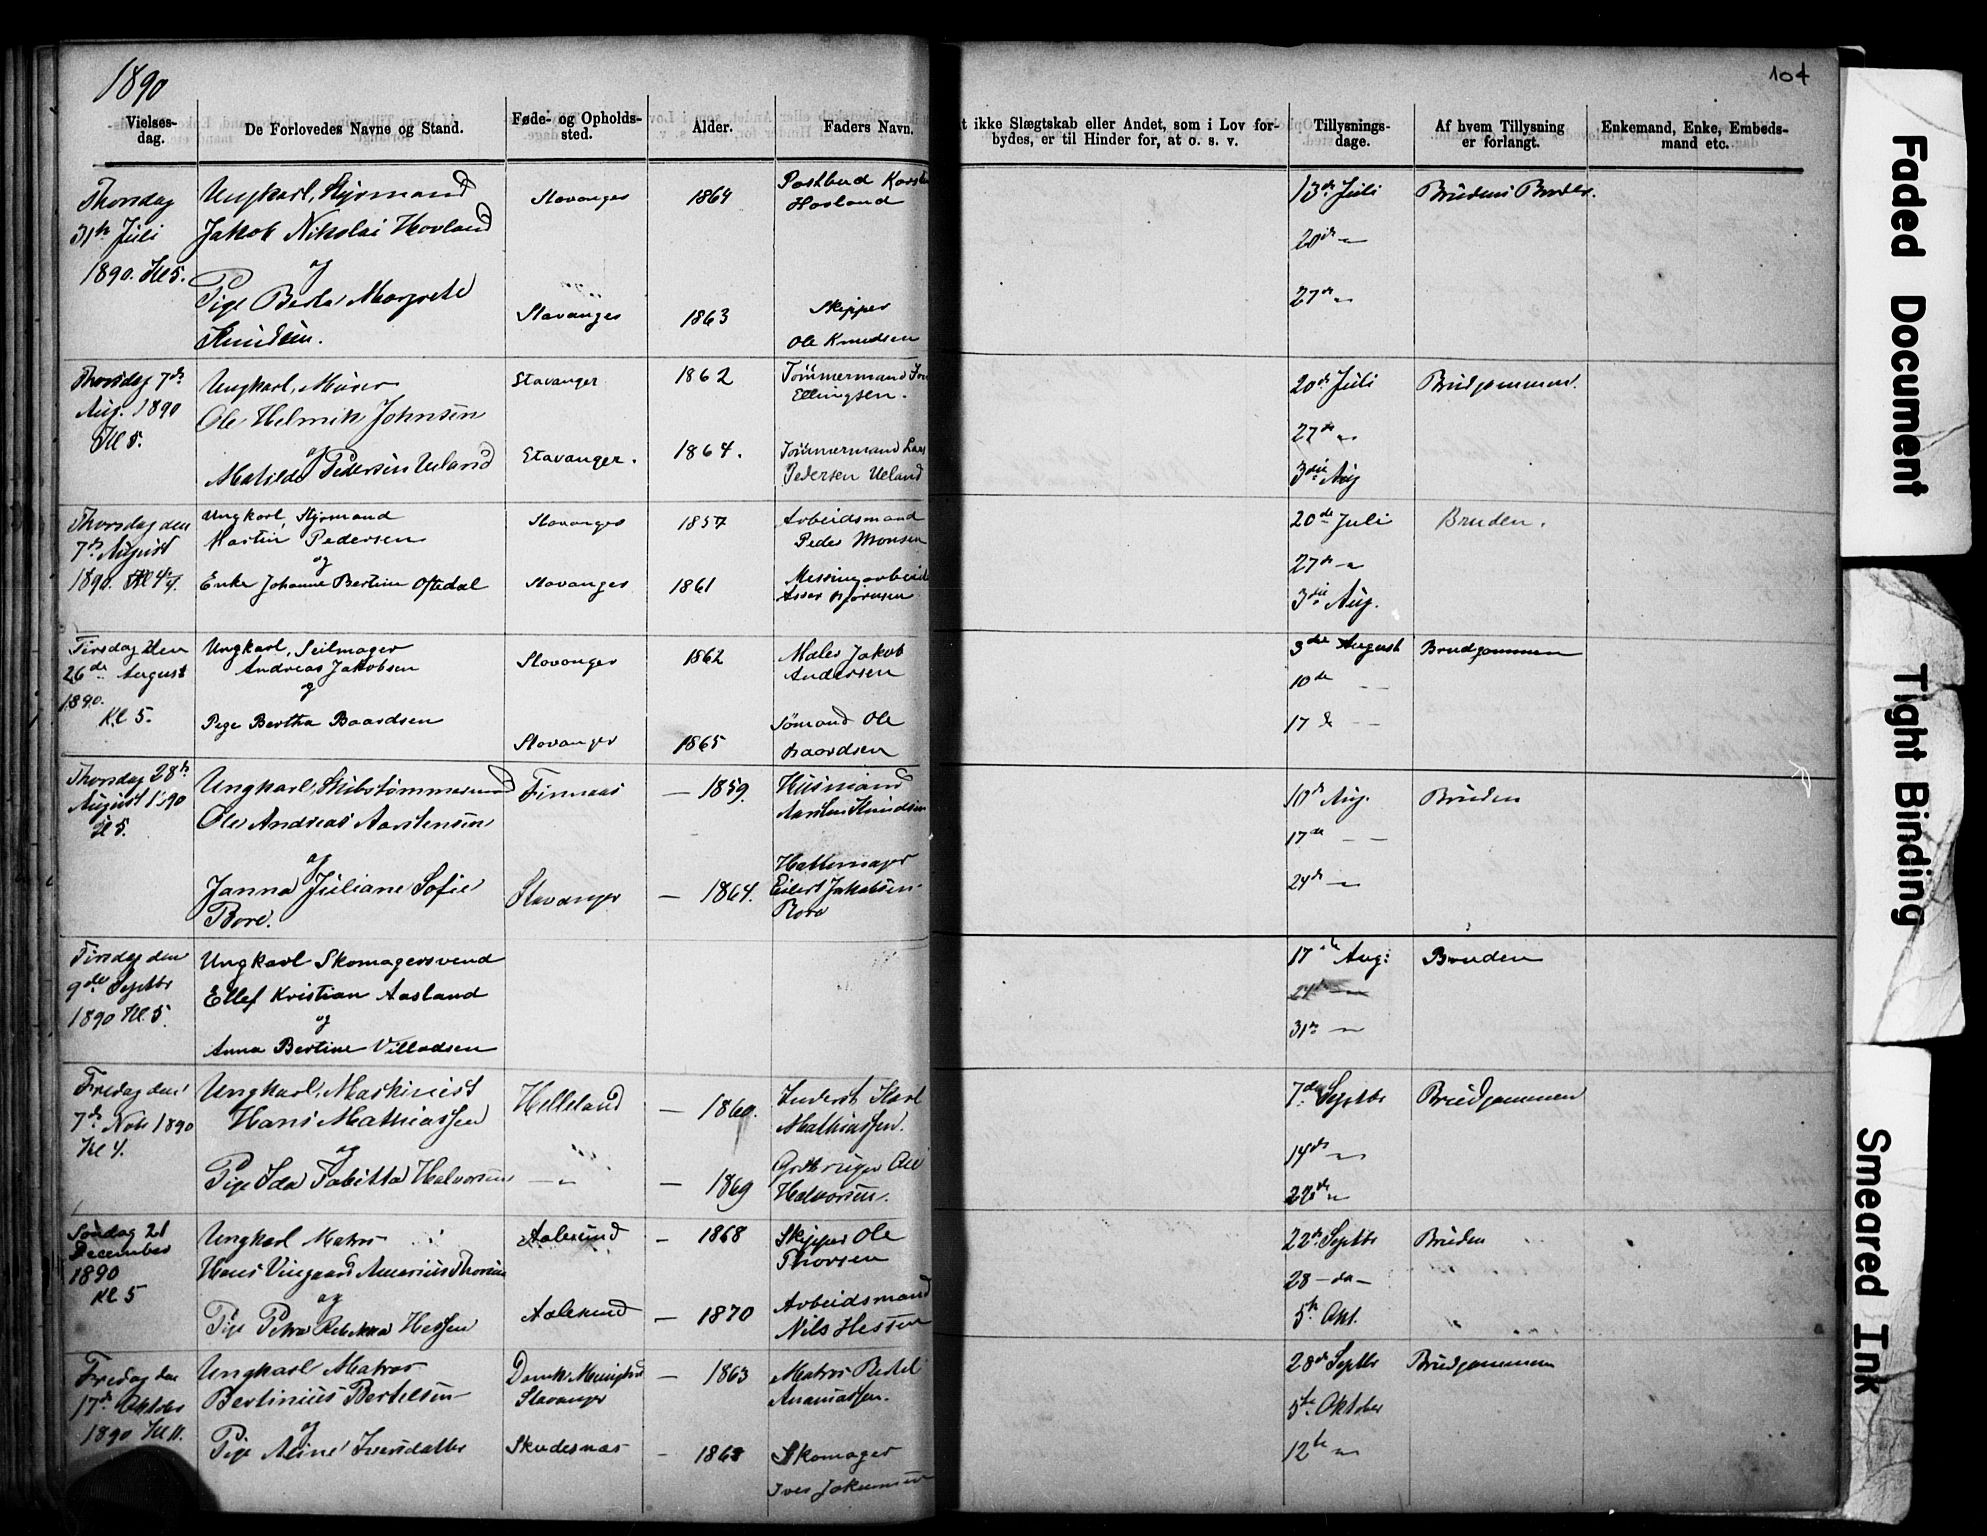 1890
104
Vielses-
dag.
De Forlovedes Navne og Stand.
Føde- og Opholds-
sted.
Alder.
Faders Navn.
ikke Slægtskab eller Andet, som i Lov for-
bydes, er til Hinder for, at o. s. v.
Tillysnings-
dage.
Af hvem Tillysning
er forlangt.
Enkemand, Enke, Embeds-
mand etc.
Thorsdag
31te Juli
1890. Kl 5.
Ungkarl, Styrmand
Jakob Nikolai Hovland
og
Pige Berta Margrete
Knudsen.
Stavanger
Stavanger
1864
1863
Postbud
Skipper
Ole Knudsen
13de Juli
20de "
27de "
Brudens Broder.
Thorsdag 7de
Aug. 1890
Kl 5.
Ungkarl, Murer
Ole Helmik Johnsen
og
Matilde Pedersen Ueland
Stavanger
Stavanger.
1862
1864.
Tömmermand
Ellingsen.
Tömmermand Lars
Pedersen Ueland
20de Juli
27de "
3die Aug
Brudgommen.
Thorsdag den
7de August
1890. Kl 4
Ungkarl, Styrmand
Martin Pedersen
og
Enke Johanne Bertine Oftedal
Stavanger
Stavanger
1857
1861
Arbeidsmand
Peder Monsen
20de Juli
27de "
3die Aug.
Bruden.
Tirsdag den
26de August
1890.
Kl 5.
Ungkarl, Seilmager
Andreas Jakobsen
og
Pige Bertha Baardsen
Stavanger
Stavanger
1862
1865
Maler Jakob
Andersen
Sømand Ole
Baardsen
3die August
10de - -
17de - -
Brudgommen
Thorsdag 28de
August 1890
Kl 5.
Ungkarl, Skibstømmermand
Ole Andreas Aarstensen
og
Janna Juliane Sofie
Bore.
Finnaas
Stavanger
— 1859.
— 1864.
Husmand
Aarsten Knudsen
Hattemager
Eilert Jakobsen
Bore
10de Aug.
17de - -
24de "
Bruden
Tirsdag den
9de Septbr
1890 Kl. 5.
Ungkarl Skomagersvend
Ellef Kristian Aasland
og
Anna Bertine Villadsen
17de Aug:
24de "
31te "
Bruden
Fredag den
7de Novb 1890
Kl 4.
Ungkarl, Maskinist
Hans Mathiassen
og
Pige Ida Tabitta Halvorsen
Helleland
— " —
— 1860.
— 1869
Inderst Karl
Mathiassen.
Ole
Halvorsen.
7de Septbr
14de "
22de "
Brudgommen
Søndag 21
December
1890
Kl 5
Ungkarl Matros
Hans Vingaard Amerius Thorsen
og
Pige Petra Rebekka Hessen
Aalesund
Aalesund
— 1868
— 1870
Skipper Ole
Thorsen
Arbeidsmand
Nils Hessen
22de Septbr
28 - da -
5te Okt.
Bruden
Fredag den
17de Oktober
1890 Kl 11.
Ungkarl Matros
Bertinius Bertelsen
og
Pige Aline Iversdatter
Stavanger
Skudesnæs
— 1863
— 1868
Matros Bertel
Ananiassen.
Skomager
Iver Jokumsen
28de Septbr
5te Oktober
12te "
Brudgommen
Faded Document
Tight Binding
Smeared Ink